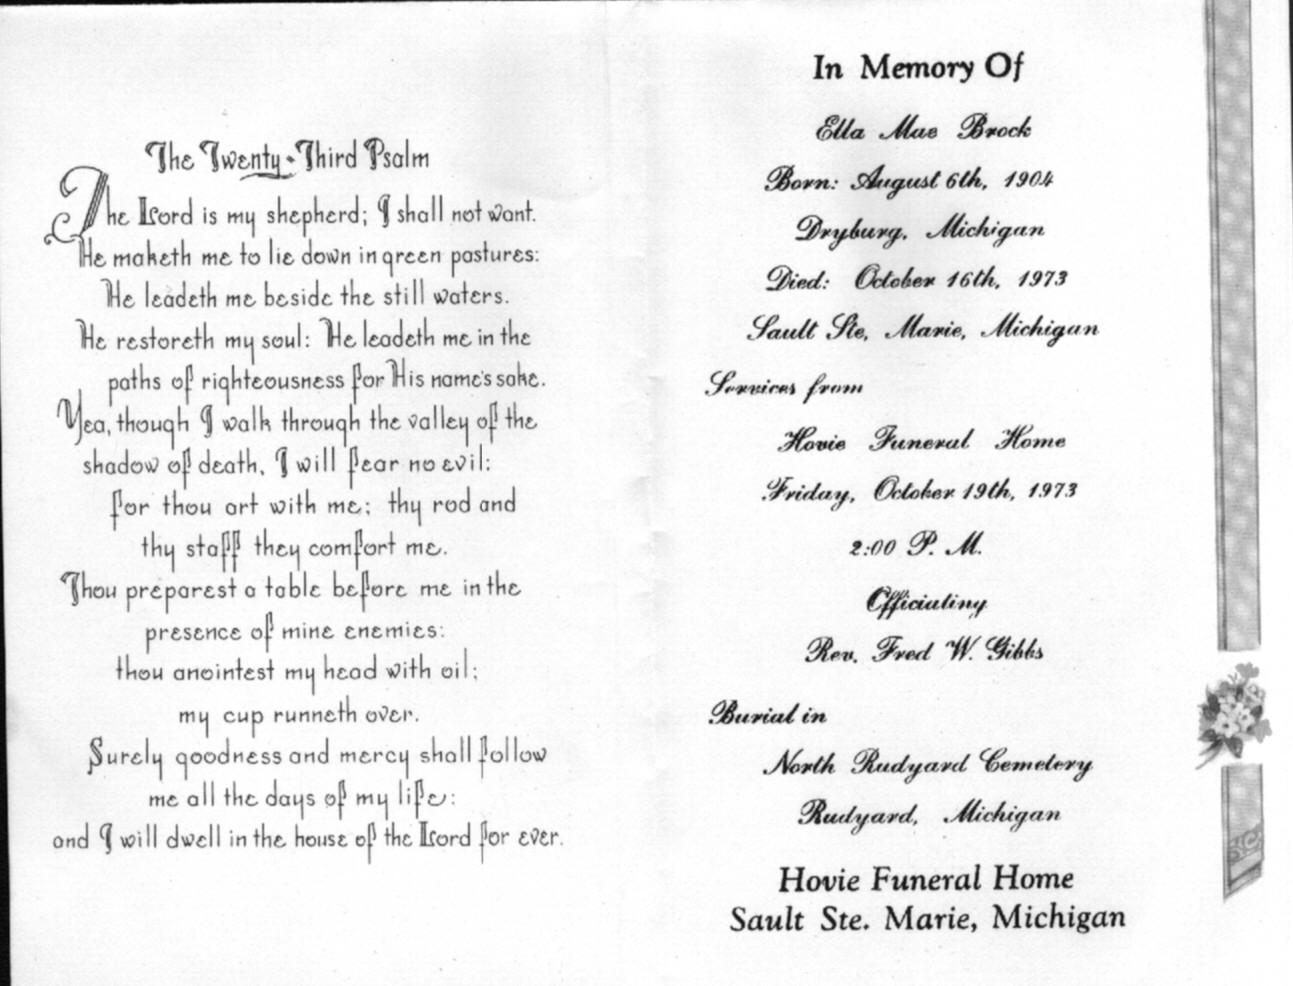 The Twenty-Third Psalm
The Lord is my shepherd; I shall not want.
He maketh me to lie down in green pastures:
He leadeth me beside the still waters.
He restoreth my soul: He leadeth me in the
paths of righteousness for His name's sake.
Yea, though I walk through the valley of the
shadow of death, I will fear no evil:
for thou art with me; thy rod and
thy staff they comfort me.
Thou preparest a table before me in the
presence of mine enemies:
thou anointest my head with oil;
my cup runneth over.
Surely goodness and mercy shall follow
me all the days of my life:
and I will dwell in the house of the Lord for ever.
In Memory Of
Ella Mae Brock
Born: August 6th, 1904
Dryburg, Michigan
Died: October 16th, 1973
Sault Ste, Marie, Michigan
Services from
Hovie Funeral Home
Friday, October 19th, 1973
2:00 P. M.
Officiating
Rev. Fred W. Gibbs
Burial in
North Rudyard Cemetery
Rudyard, Michigan
Hovie Funeral Home
Sault Ste. Marie, Michigan